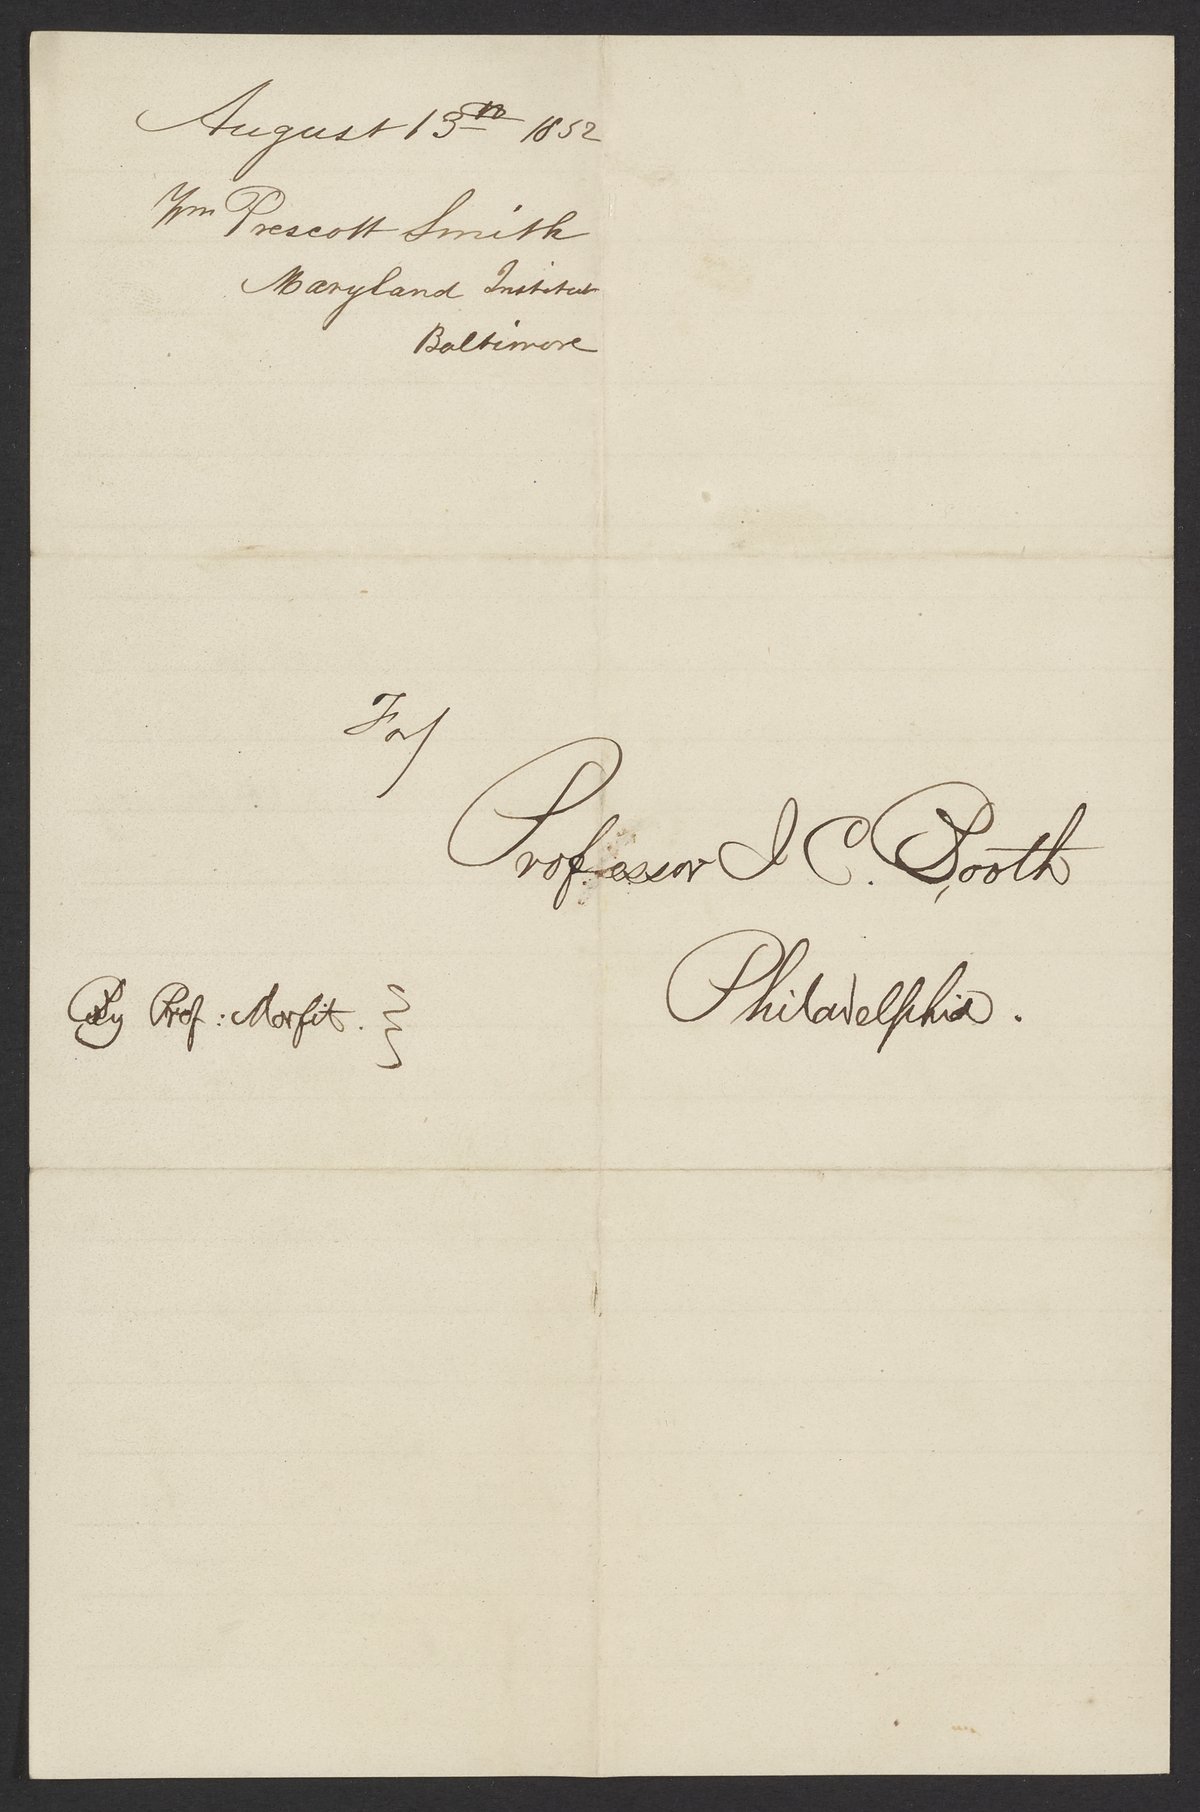 August 13th 1852
Wm Prescott Smith
Maryland Institut
Baltimore
For/
Professor J C. Booth
Philadelphia.
By Prof: Morfit.